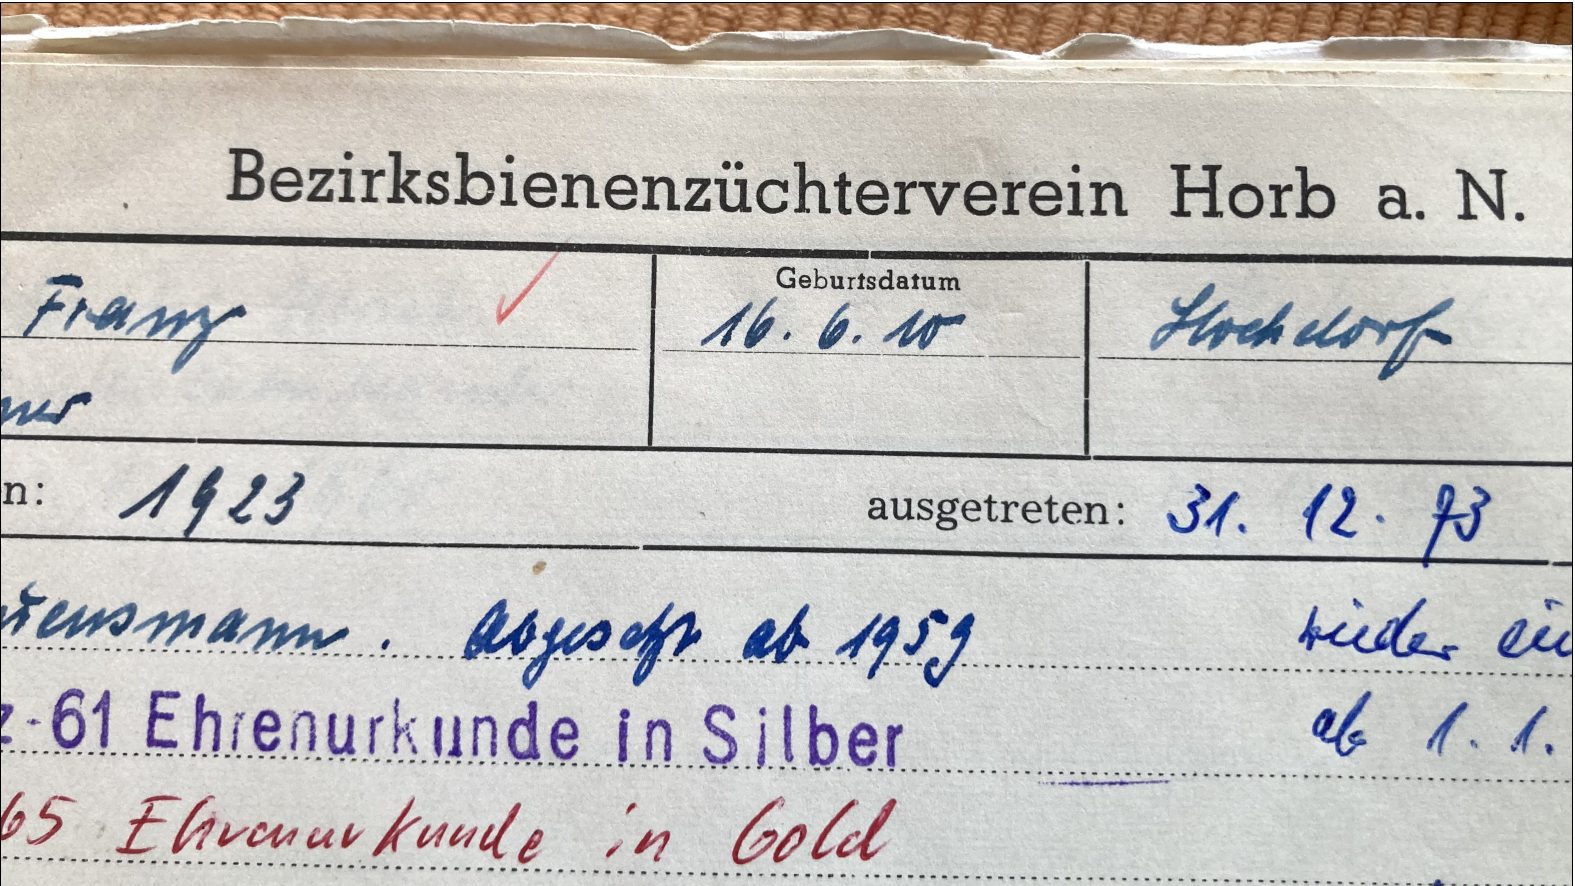 Bezirksbienenzüchterverein Horb a. N.
Franz
Geburtsdatum
16. 6. 10
Hochdorf
ner
n: 1923 ausgetreten: 31. 12. 73
uensmann. Abgesetzt ab 1959 wieder ein
z-61 Ehrenurkunde in Silber ab 1. 1.
65 Ehrenurkunde in Gold